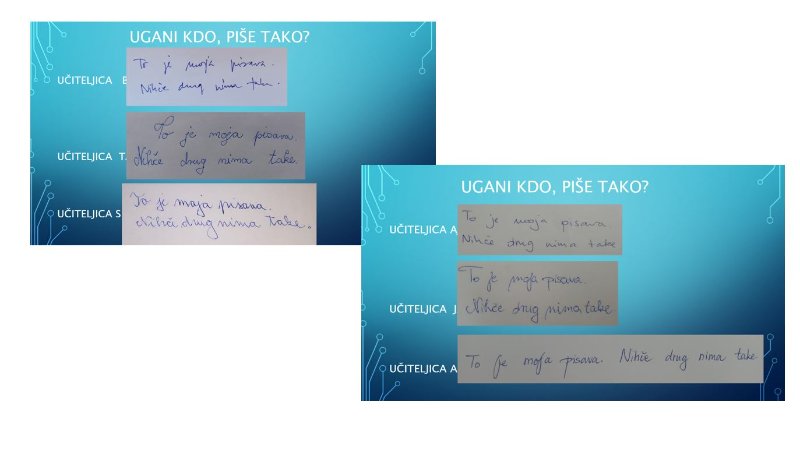 UGANI KDO, PIŠE TAKO?
UČITELJICA E
To je moja pisava.
Nihče drug nima take.
UČITELJICA T.
To je moja pisava.
Nihče drug nima take.
UČITELJICA S
To je moja pisava.
Nihče drug nima take.
UGANI KDO, PIŠE TAKO?
UČITELJICA A
To je moja pisava.
Nihče drug nima take
UČITELJICA J
To je moja pisava.
Nihče drug nima take
UČITELJICA A
To je moja pisava. Nihče drug nima take.